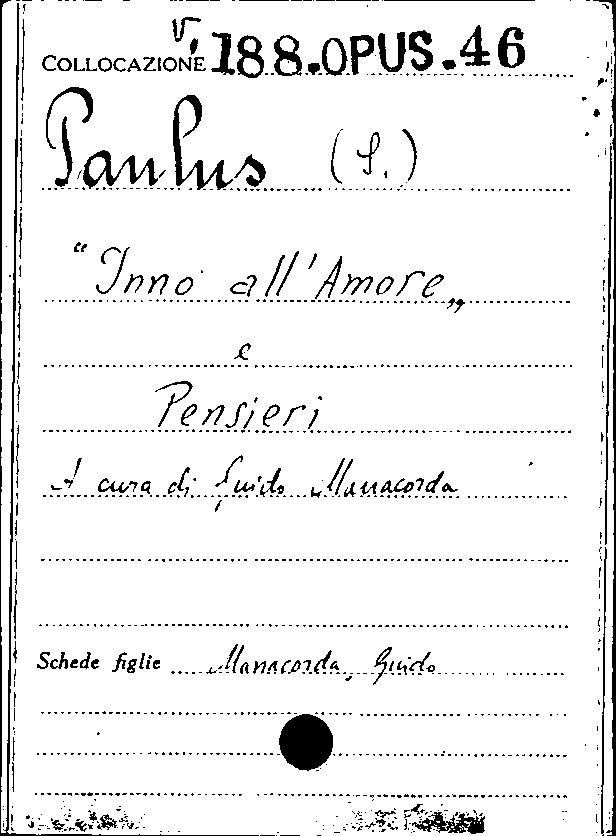 V.
COLLOCAZIONE 188.OPUS.46
Paulus (S.)
"Inno all'Amore„
e
Pensieri
A cura di Guido Manacorda
Schede figlie Manacorda, Guido